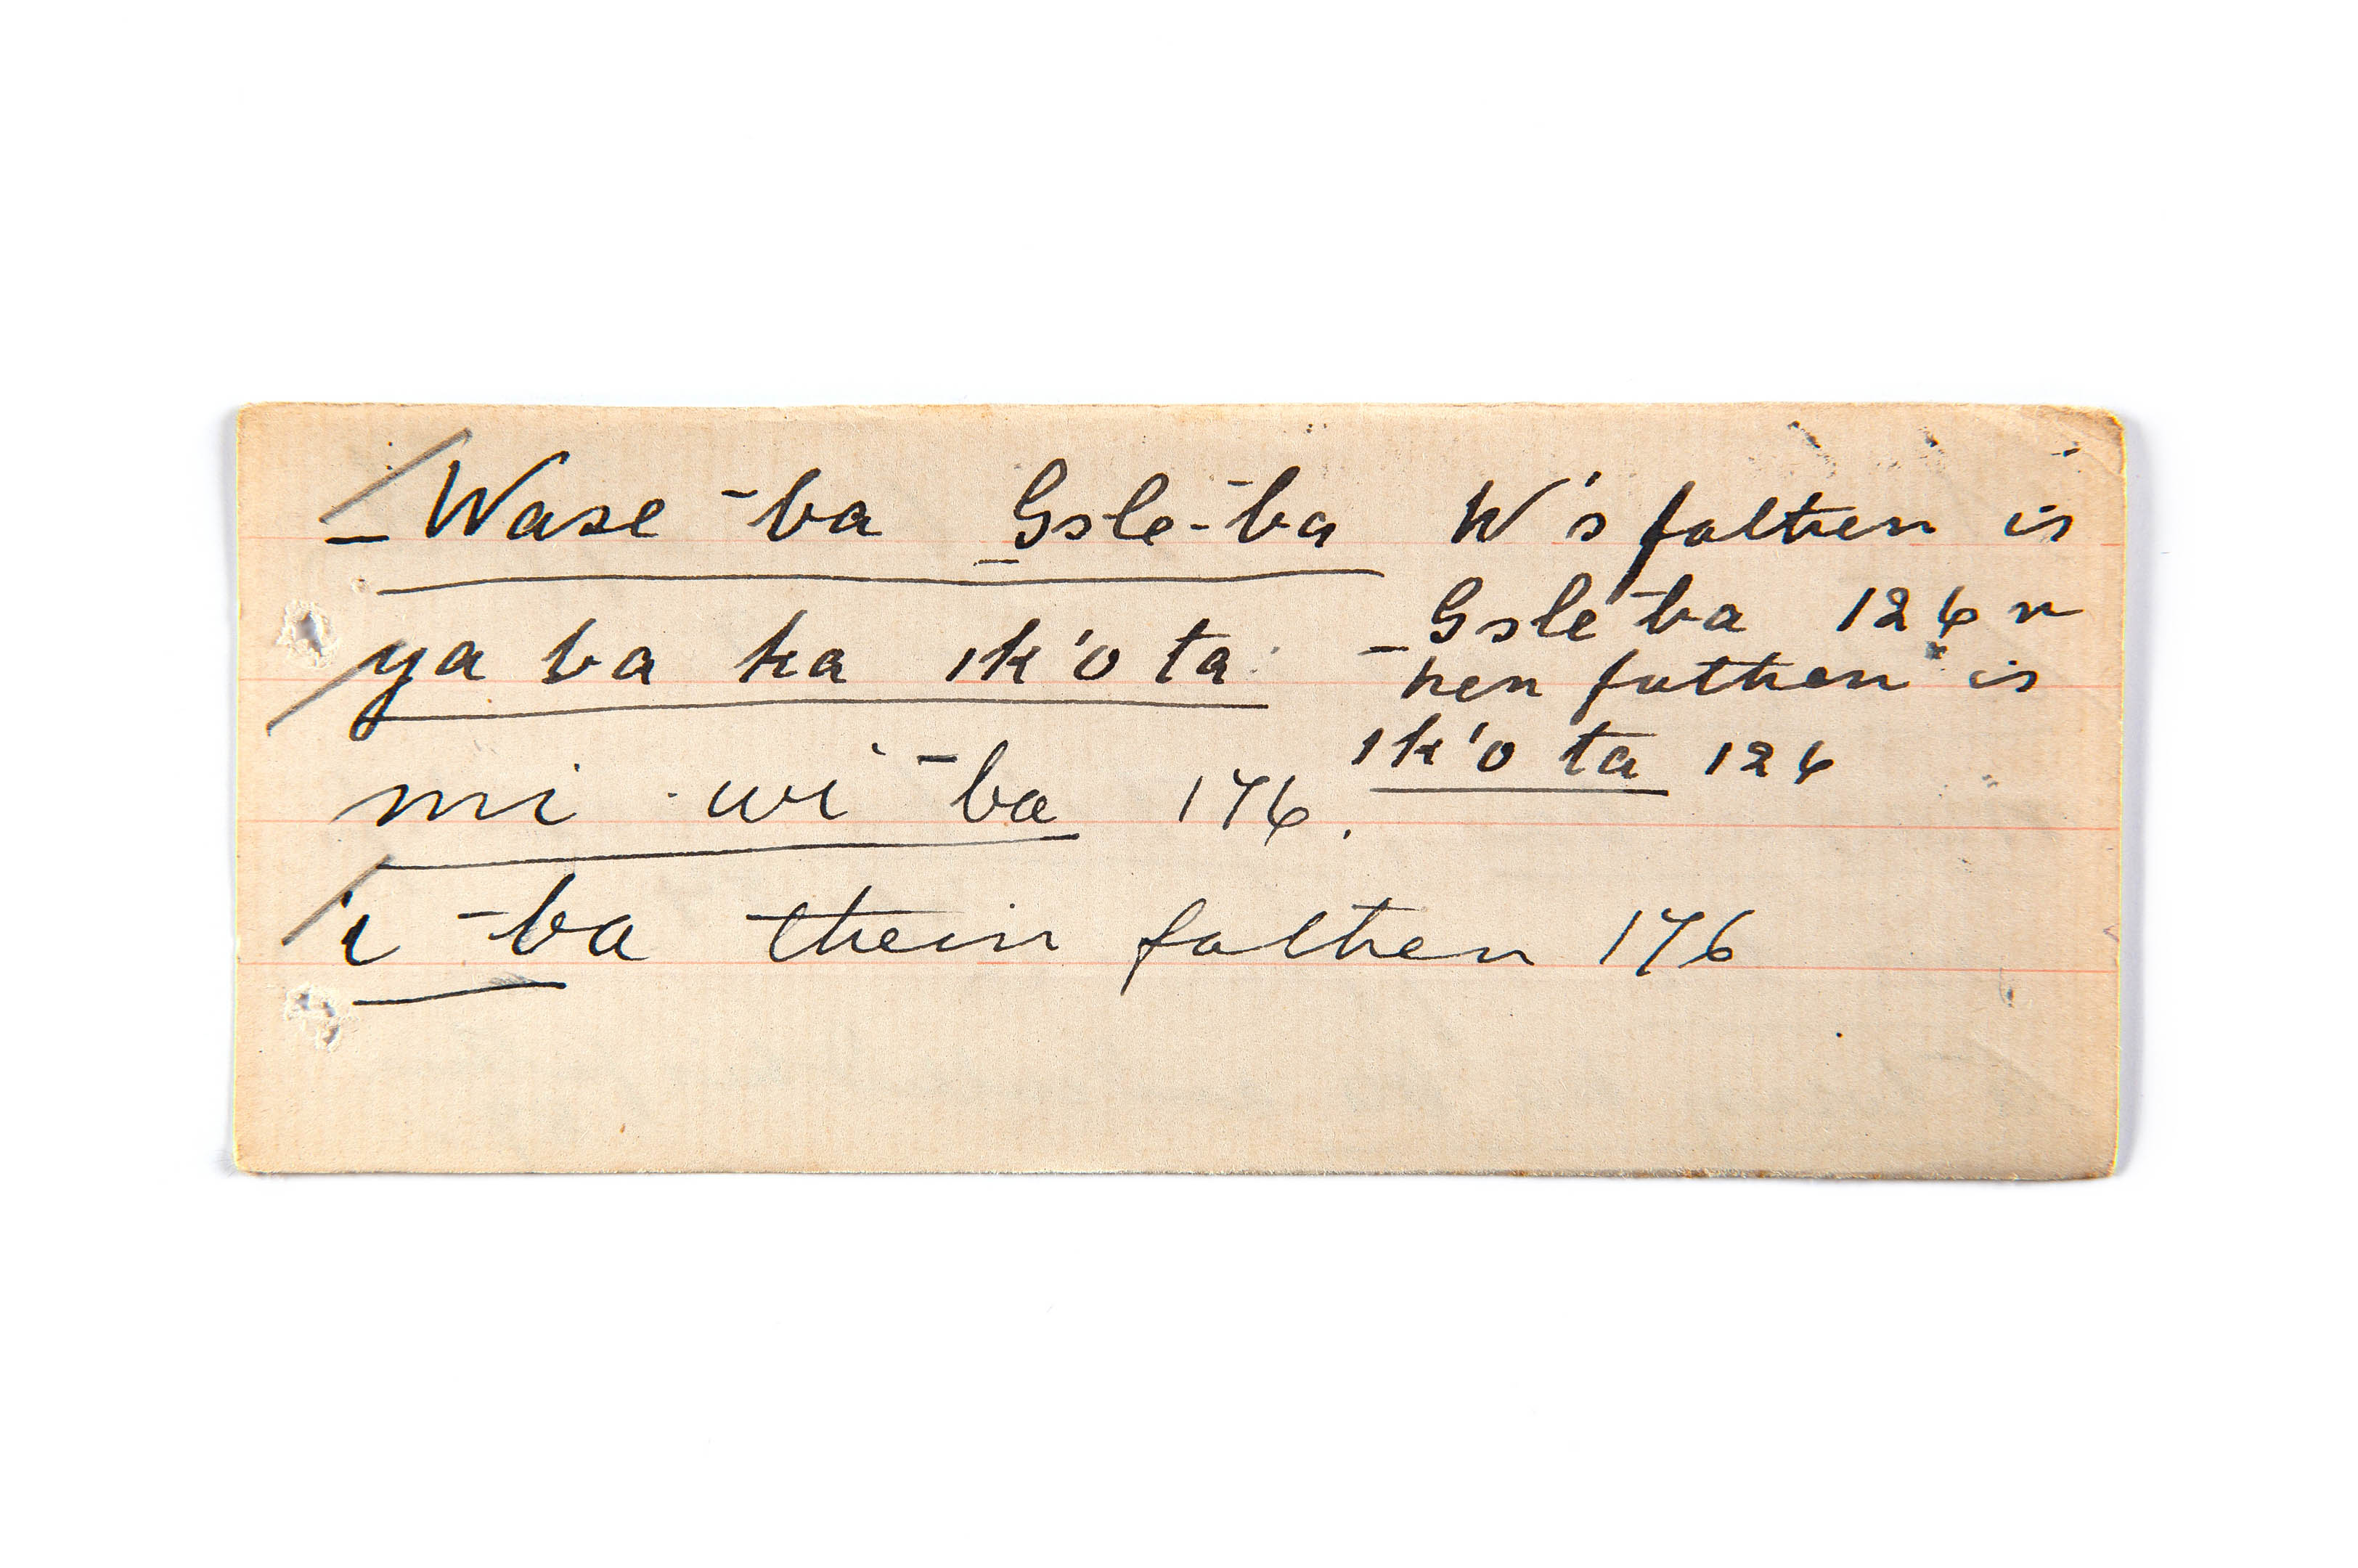 _Wase -ba _Gsle-ba W's father is
_Gsle-ba 126 r
ya ba ka ik'o ta
her father is
ik'o ta 126
mi wi -ba 176.
i -ba their father 176